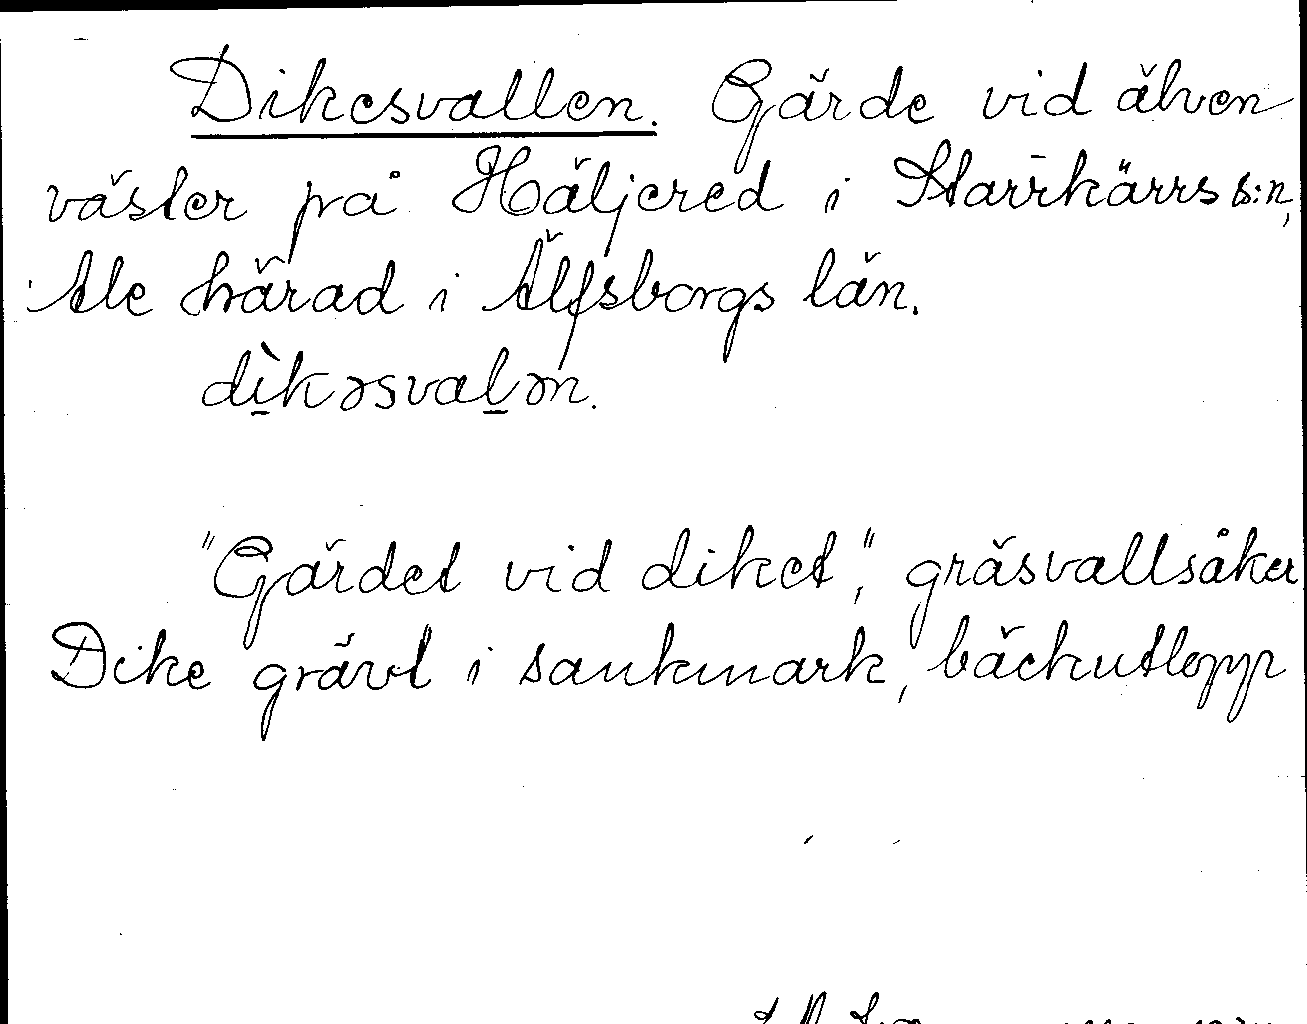 Dikesvallen. Gärde vid älven
väster på Häljered i Starrkärrs s:n,
Ale härad i Älfsborgs län.
dìkəsvalən.
"Gärdet vid diket," gräsvallsåker
Dike grävt i sankmark, bäckutlopp